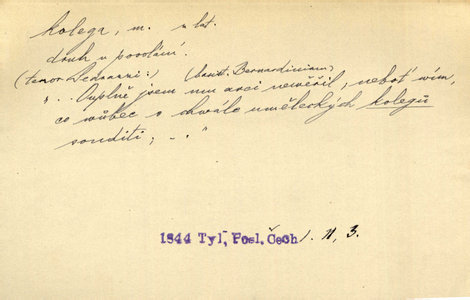 kolega, m. z lat.
druh v povolání.
(tenor Ledvanni:) (basist. Bernardiniani)
„... Ouplně jsem mu arci nevěřil, neboť vím,
co vůbec o chvále uměleckých kolegů
souditi; ..."
1844 Tyl, Posl. Čech. 1. N, 3.